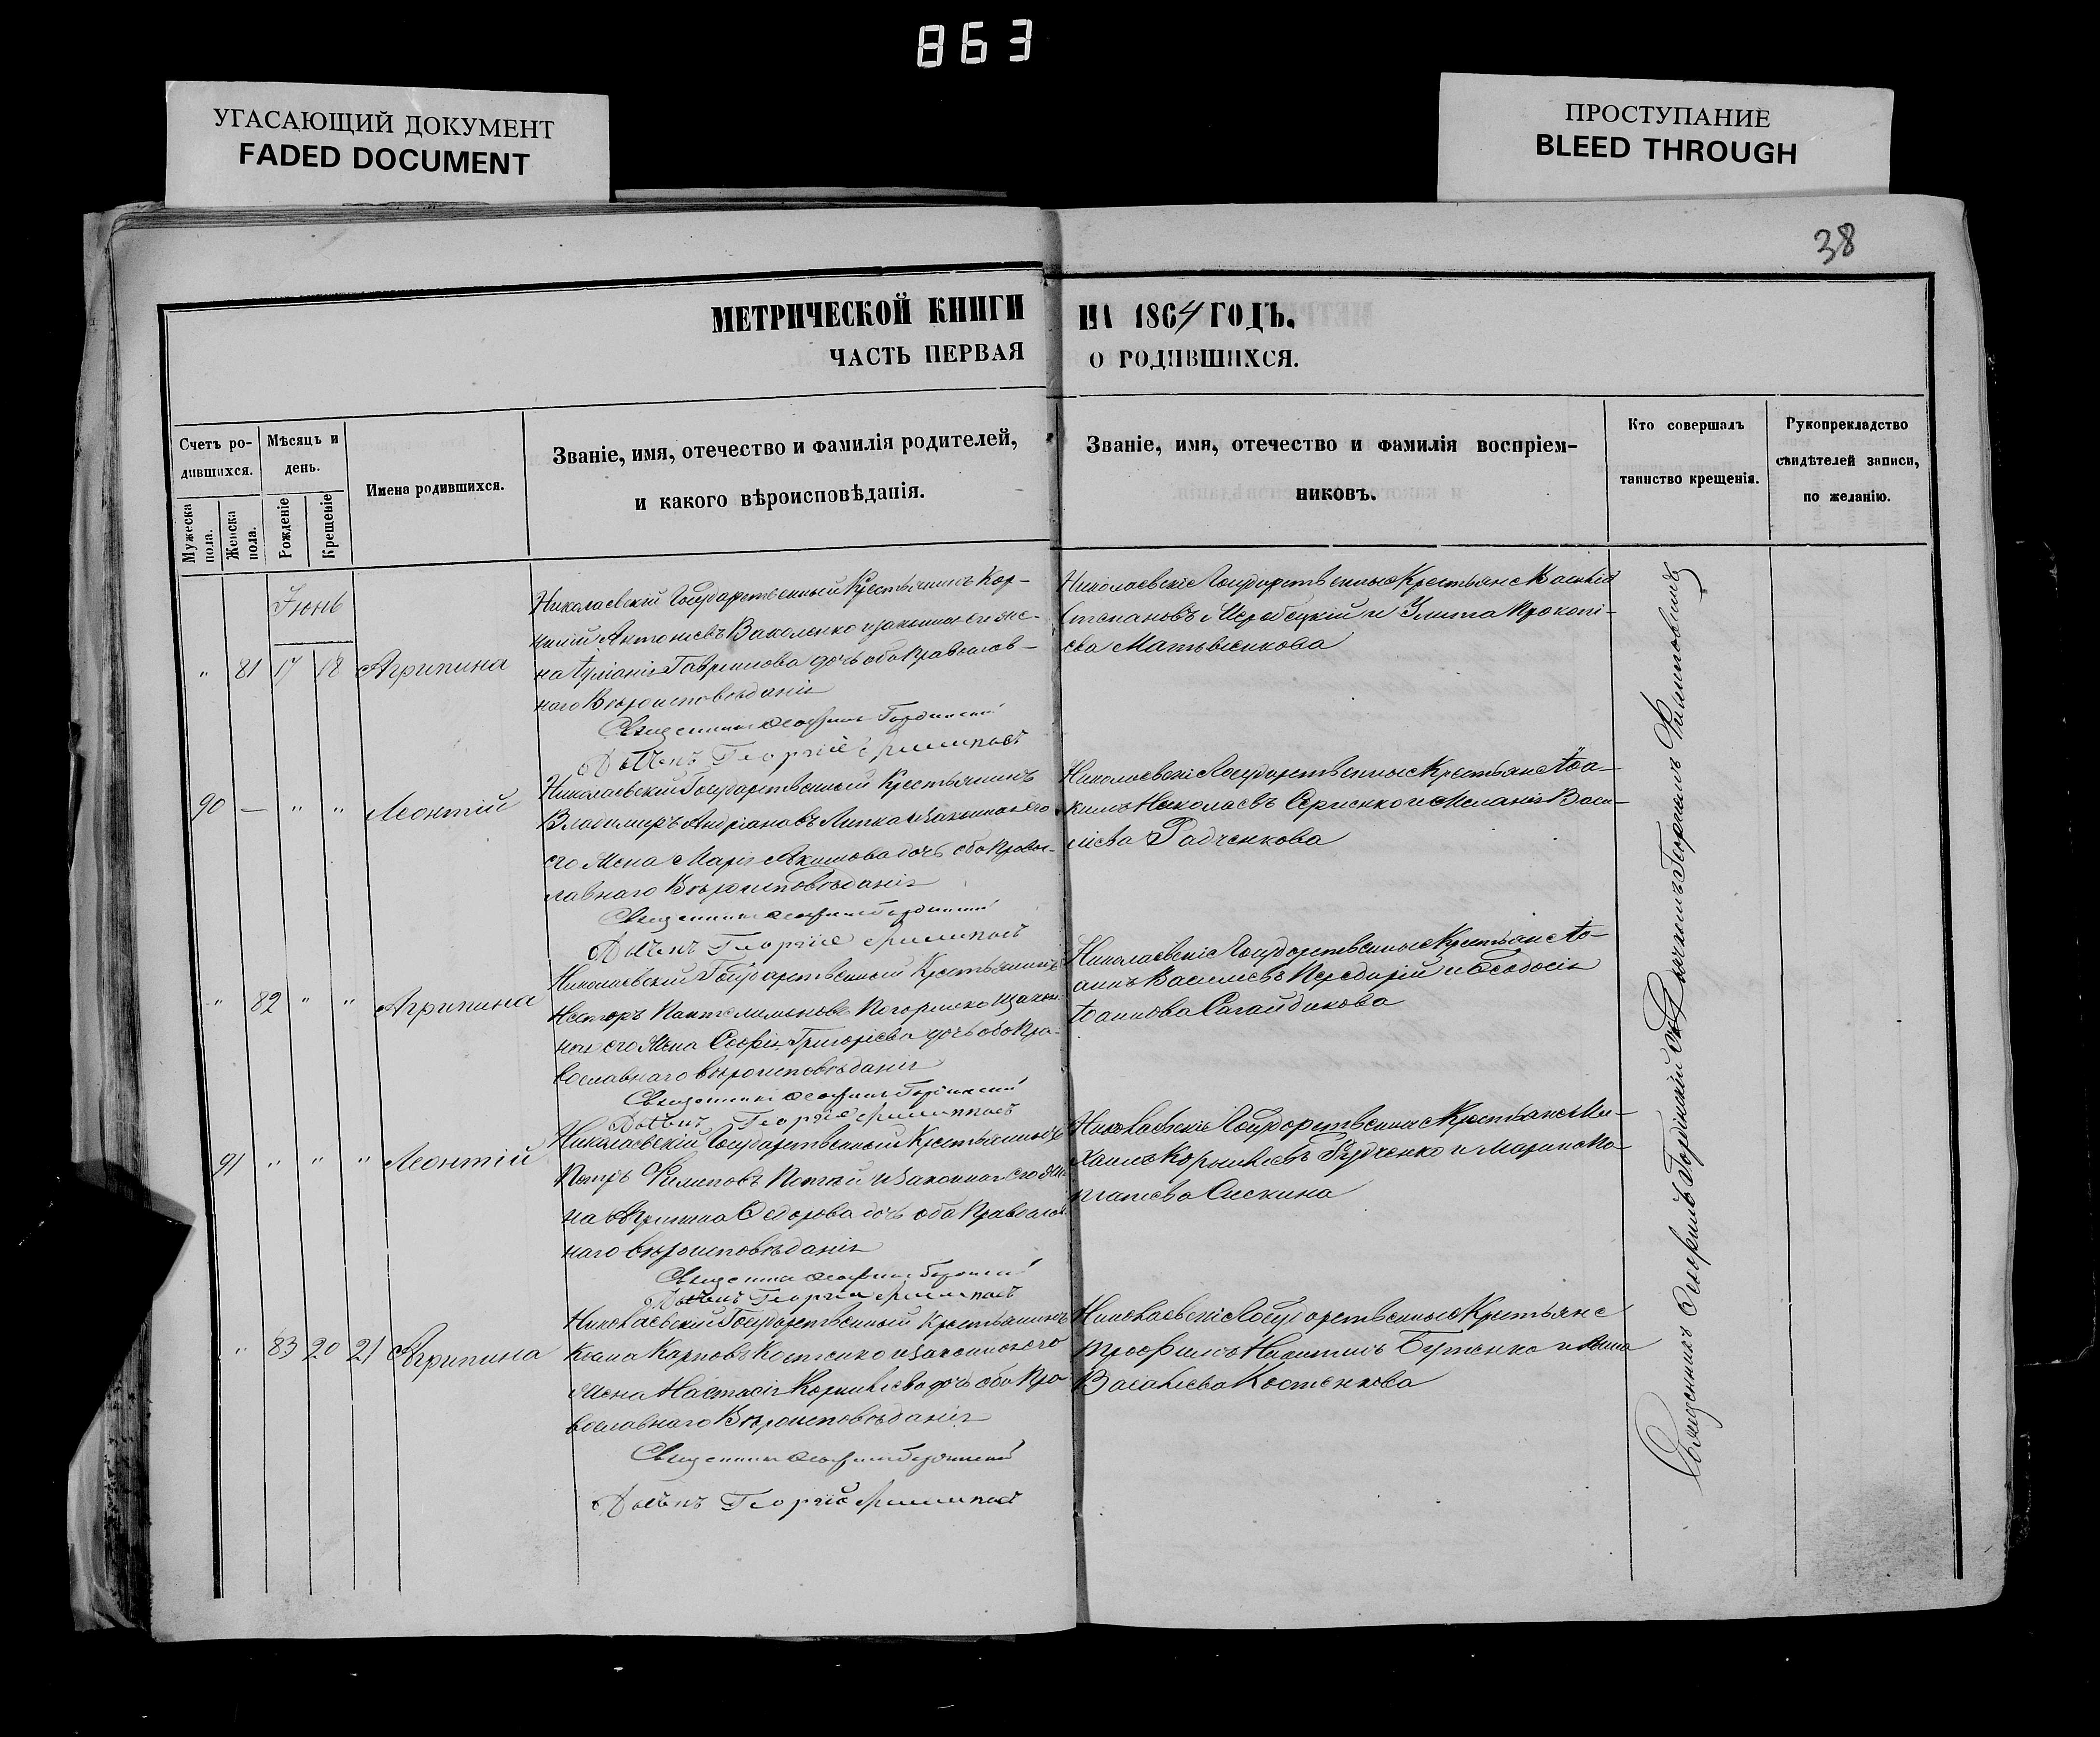 863
УГАСАЮЩИЙ ДОКУМЕНТ
FADED DOCUMENT
ПРОСТУПАНИЕ
BLEED THROUGH
38
МЕТРИЧЕСКОЙ КНИГИ НА 1864 ГОДЪ.
ЧАСТЬ ПЕРВАЯ О РОДИВШИХСЯ.
Счетъ ро-
дившихся.
Мужеска пола.
Женска пола.
Мѣсяцъ и
день.
Рожденіе
Крещеніе
Имена родившихся.
Званіе, имя, отечество и фамилія родителей,
и какого вѣроисповѣданія.
Званіе, имя, отечество и фамилія воспріем-
никовъ.
Кто совершалъ
таинство крещенія.
Рукоприкладство
свидѣтелей записи,
по желанію.
Іюнь
" 81 17 18 Агрипина
Николаевскій Государственный Крестьянинъ Кор-
нилій Антоніевъ Ваколенко и законная его же-
на Гаврилова дочь оба Православ-
наго Вѣроисповѣданія
Священникъ
Дьячекъ Георгій
Николаевскіе Государственные Крестьяне Василій
Степановъ Жеребецкій и Улита Прокопі-
ева Матвіенкова
90 — " " Леонтій
Николаевскій Государственный Крестьянинъ
Владимиръ Андріановъ Липка и Законная его
его Жена Марія Акимова дочь оба Правос-
лавнаго Вѣроисповѣданія
Священникъ
Дьячекъ Георгій
Николаевскіе Государственные Крестьяне Іоа-
кимъ Николаевъ Сергіенко и Меланія Васи-
ліева Радченкова
" 82 " " Агрипина
Николаевскій Государственный Крестьянинъ
Несторъ Пантелимоновъ и закон-
ная его Жена Софія Григоріева дочь оба Пра-
вославнаго вѣроисповѣданія
Священникъ
Дьячекъ Георгій
Николаевскіе Государственные Крестьяне Іо-
аннъ Василіевъ Передирій и Ѳеодосія
Іоаннова Сагайдакова
91 " " " Леонтій
Николаевскій Государственный Крестьянинъ
Петръ Филиповъ и Законная его Же-
на Агрипина Ѳедорова дочь оба Православ-
наго вѣроисповѣданія
Священникъ
Дьячекъ Георгій
Николаевскіе Государственные Крестьяне Ми-
хаилъ Корниліевъ Рудченко и Марина
" 83 20 21 Агрипина
Николаевскій Государственный Крестьянинъ
Косма Карповъ Костенко и Законная его
Жена Настасія Корниліева дочь оба Пра
вославнаго Вѣроисповѣданія
Священникъ
Дьячекъ Георгій
Николаевскіе Государственные Крестьяне
Трофимъ Никитинъ Бутенко и Анна
Василіева Костенкова
Священникъ съ Дьячкомъ Георгіемъ